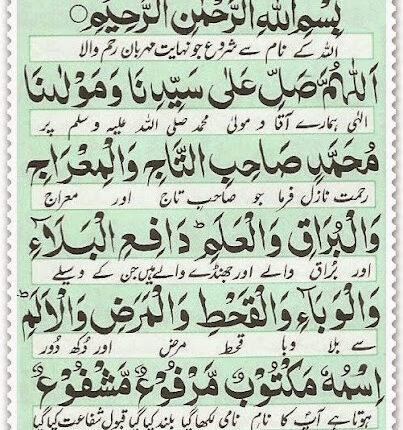 بِسْمِ اللهِ الرَّحْمٰنِ الرَّحِيْمِ
اللہ کے نام سے شروع جو نہایت مہربان رحم والا
اَللّٰهُمَّ صَلِّ عَلٰى سَيِّدِنَا وَمَوْلٰنَا
الٰہی ہمارے آقا و مولیٰ محمد صلی اللہ علیہ وسلم پر
مُحَمَّدٍ صَاحِبِ التَّاجِ وَالْمِعْرَاجِ
رحمت نازل فرما جو صاحب تاج اور معراج
وَالْبُرَاقِ وَالْعَلَمِ ؕ دَافِعِ الْبَلَآءِ
اور بُراق والے اور جھنڈے والے ہیں جن کے وسیلے
وَالْوَبَآءِ وَالْقَحْطِ وَالْمَرَضِ وَالْاَلَمِ ؕ
سے بلا وبا قحط مرض اور دُکھ دُور
اِسْمُهٗ مَكْتُوْبٌ مَّرْفُوْعٌ مَّشْفُوْعٌ
ہوتا ہے آپؐ کا نام نامی لکھا گیا بلند کیا گیا قبول شفاعت کیا گیا